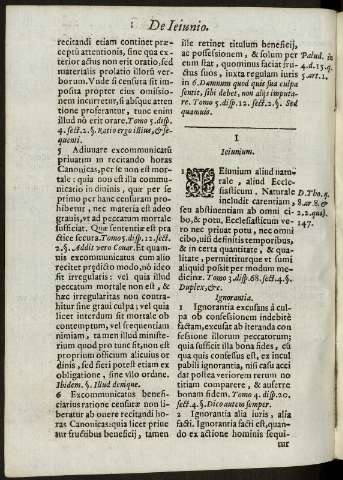 I De Ieiunio.
recitandi etiam continet præ-
ceptũ attentionis, sine qua ex-
terior actus non erit oratio, sed
materialis prolatio illorũ ver-
borum. Vnde si censura sit im-
posita propter eius omissio-
nem incurretur, si absque atten
tione proferantur, tunc enim
illud nõ erit orare. Tomo 5. disp.
4. sect. 2. §. Ratio ergo illius, & se-
quenti.
5 Adiuuare excommunicatũ
priuatim in recitando horas
Canonicas, per se non est mor-
tale: quia non est illa commu-
nicatio in diuinis, que per se
primo per hanc censuram pro-
hibetur, nec materia est adeo
grauis, vt ad peccatum mortale
sufficiat. Quæ sententia est pra
ctice secura. Tomo 5. disp. 12. sect.
2. §. Addit vero Couar. Et quam-
uis excommunicatus cum alio
recitet prædicto modo, nõ ideo
fit irregularis: vel quia illud
peccatum mortale non est, &
hæc irregularitas non contra-
hitur sine graui culpa; vel quia
licet interdum sit mortale ob
contemptum, vel frequentiam
nimiam, tamen illud ministe-
rium quod pro tunc sit, non est
proprium officium alicuius or
dinis, sed fieri potest etiam ex
obligatione, sine vllo ordine.
Ibidem. §. Illud denique.
6 Excommunicatus benefi-
ciarius ratione censuræ non li-
beratur ab onere recitandi ho-
ras Canonicas: quia licet priue
tur fructibus beneficij, tamen
ille retinet titulum beneficij,
ac possessionem, & solum per
eum stat, quominus faciat fru-
ctus suos, iuxta regulam iuris
in 6. Damnum quod quis sua culpa
sentit, sibi debet, non alijs imputa-
re. Tomo 5. disp. 12. sect. 2. §. Sed
quamuis.
Palud. in
4. d. 15. q.
5. art. 2.
I
Ieiunium.
IEiunium aliud natu-
rale, aliud Eccle-
siasticum. Naturale
includit carentiam,
seu abstinentiam ab omni ci-
bo, & potu, Ecclesiasticum ve-
ro nec priuat potu, nec omni
cibo, nisi definitis temporibus,
& in certa quantitate, & qua-
litate, permittiturque vt sumi
aliquid possit per modum me-
dicinæ. Tomo 3. disp. 68. sect. 4. §.
Duplex, &c.
D. Tho. q.
147.
Ignorantia.
1 Ignorantia excusans à cul-
pa ob confessionem indebitè
factam, excusat ab iteranda con
fessione illorum peccatorum;
quia sufficit illa bona fides, cũ
qua quis confessus est, ex incul
pabili ignorantia, nisi casu acci
dat postea veriorem rerum no
titiam comparere, & auferre
bonam fidem. Tomo 4. disp. 20.
sect. 4. §. Dico autem semper.
2 Ignorantia alia iuris, alia
facti. Ignorantia facti est, quan-
do ex actione hominis sequi-
tur